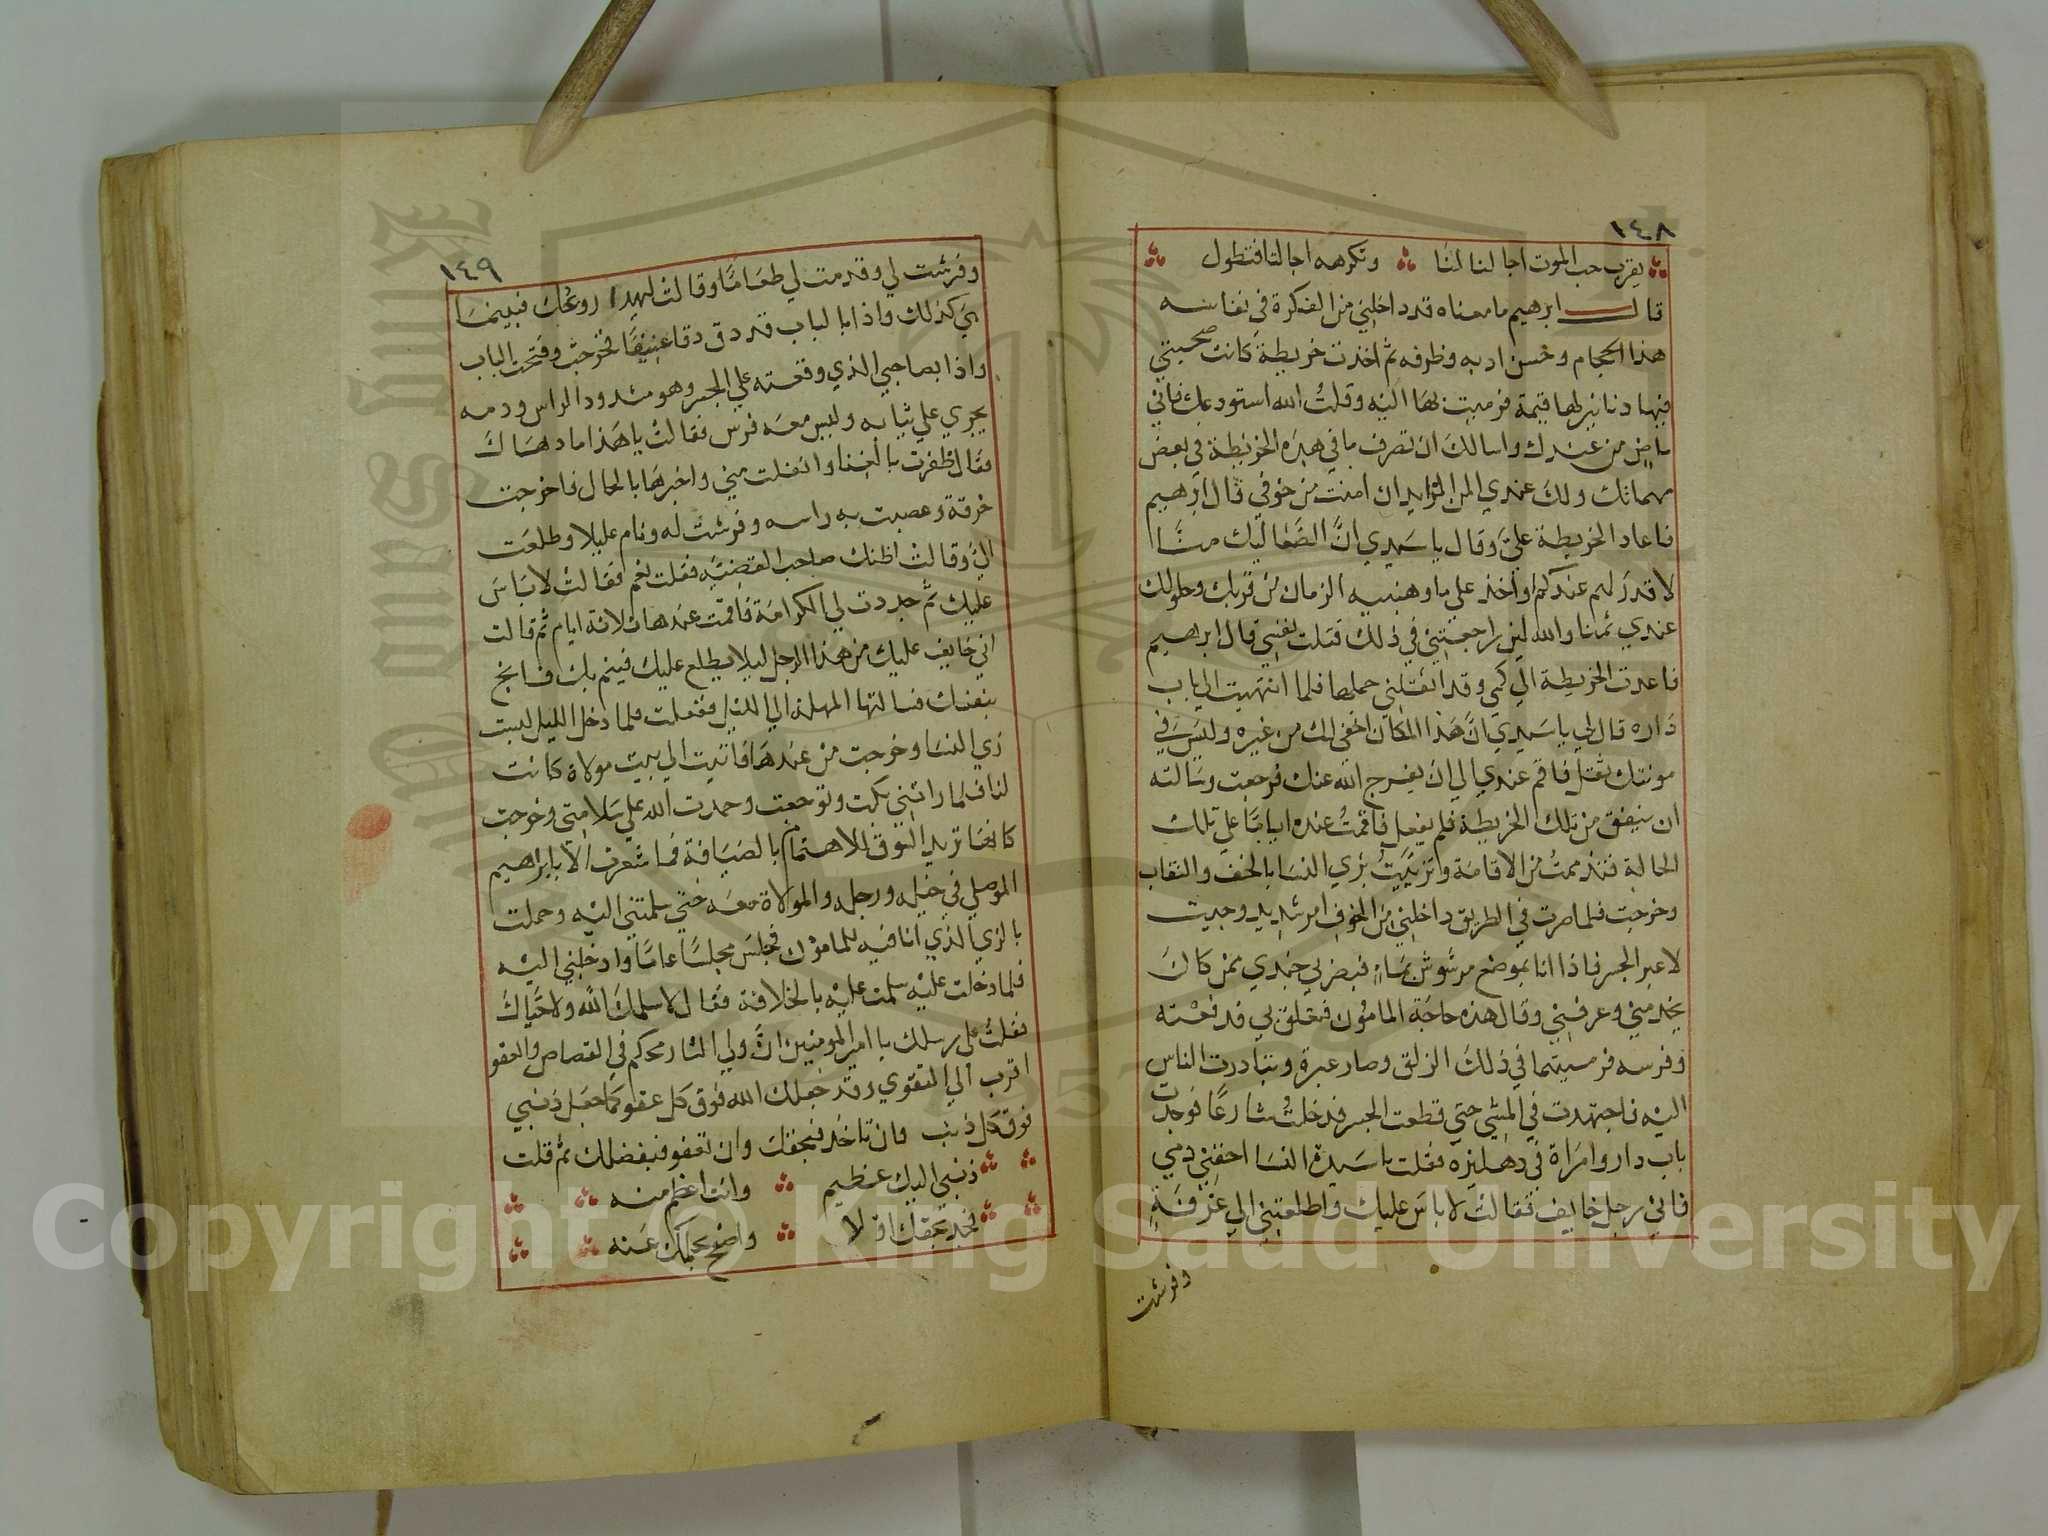 ١٤٨
يقرب حب الموت اجالنا لنا وتكرهه اجالتا فتطول
قال ابرهيم ما معناه قد داخلني من الفكرة في نفاسه
هذا الحجام وحسن ادبه وظرفه ثم اخذت خريطة كانت صحبتي
فيها دنانير لها قيمة فرميت بها اليه وقلت الله استودعك فاني
ماض من عندك واسالك ان تصرف ما في هذه الخريطة في بعض
مهماتك ولك عندي المن الزايد ان امنت من خوفي قال ابرهيم
فاعاد الخريطة علي وقال يا سيدي ان الصعاليك منا
لا قدر لهم عندكم اواخذ على ما وهبنيه الزمان من قربك وحلولك
عندي ثمنا والله لين راجعتني في ذلك قتلت نفسي قال ابرهيم
فاعدت الخريطة الي كمي وقد اثقلني حملها فلما انتهيت الي باب
داره قال لي يا سيدي ان هذا المكان اخفى لك من غيره وليس في
مونتك ثقل فاقم عندي الي ان يفرج الله عنك فرجعت وسالته
ان ينفق من تلك الخريطة فلم يفعل فاقمت عنده اياما على تلك
الحالة فتذممت من الاقامة وتزييت بزي النسا بالخف والنقاب
وخرجت فلما صرت في الطريق داخلني من الخوف امر شديد وجيت
لاعبر الجسر فاذا انا بموضع مرشوش بماء فبصر بي جندي ممن كان
يخدمني وعرفني وقال هذه حاجة المامون فتعلق بي فدفعته
وفرسه فرميتهما في ذلك الزلق وصار عبرة وتبادرت الناس
اليه فاجتهدت في المشي حتي قطعت الجسر فدخلت شارعا فوجدت
باب دار وامراة في دهليزه فقلت يا سيدة النسا احقني دمي
فاني رجل خايف فقالت لا باس عليك واطلعتني الي غرفة
وفرشت
١٤٩
وفرشت لي وقدمت لي طعاما وقالت ليهدا روعك فبينما
هي كذلك واذا بالباب قد دق دقا عنيفا فخرجت وفتحت الباب
واذا بصاحبي الذي دفعته علي الجسر وهو مشدود الراس ودمه
يجري علي ثيابه وليس معه فرس فقالت يا هذا ما دهاك
فقال ظفرت بالغنا وانفلت مني واخبرها بالحال فاخرجت
خرقة وعصبت به راسه وفرشت له ونام عليلا وطلعت
الي وقالت اظنك صاحب القضية فقلت نعم فقالت لا باس
عليك ثم جددت لي الكرامة فاقمت عندها ثلاثة ايام ثم قالت
اني خايف عليك من هذا الرجل ليلا يطلع عليك فينم بك فانج
بنفسك فسالتها المهلة الي الليل ففعلت فلما دخل الليل لبست
زي النسا وخرجت من عندها فاتيت الي بيت مولاة كانت
لنا فلما راتني بكت وتوجعت وحمدت الله علي سلامتي وخرجت
كانها تريد السوق للاهتمام بالضيافة فما شعرت الا بابراهيم
الموصلي في خيله ورجله والمولاة معه حتي سلمتني اليه وحملت
بالزي الذي انا فيه للمامون فجلس مجلسا عاما وادخلني اليه
فلما دخلت عليه سلمت عليه بالخلافة فقال لا سلمك الله ولا حياك
فقلت على رسلك يا امير المومنين ان ولي الثار محكم في القصاص والعفو
اقرب الي التقوي وقد جعلك الله فوق كل عفو كما جعل ذنبي
فوق كل ذنب فان تاخذ فبحقك وان تعفو فبفضلك ثم قلت
ذنبي اليك عظيم وانت اعظم منه
فخذ بحقك او لا واصفح بحلمك عنه
Copyright © King Saud University
1957